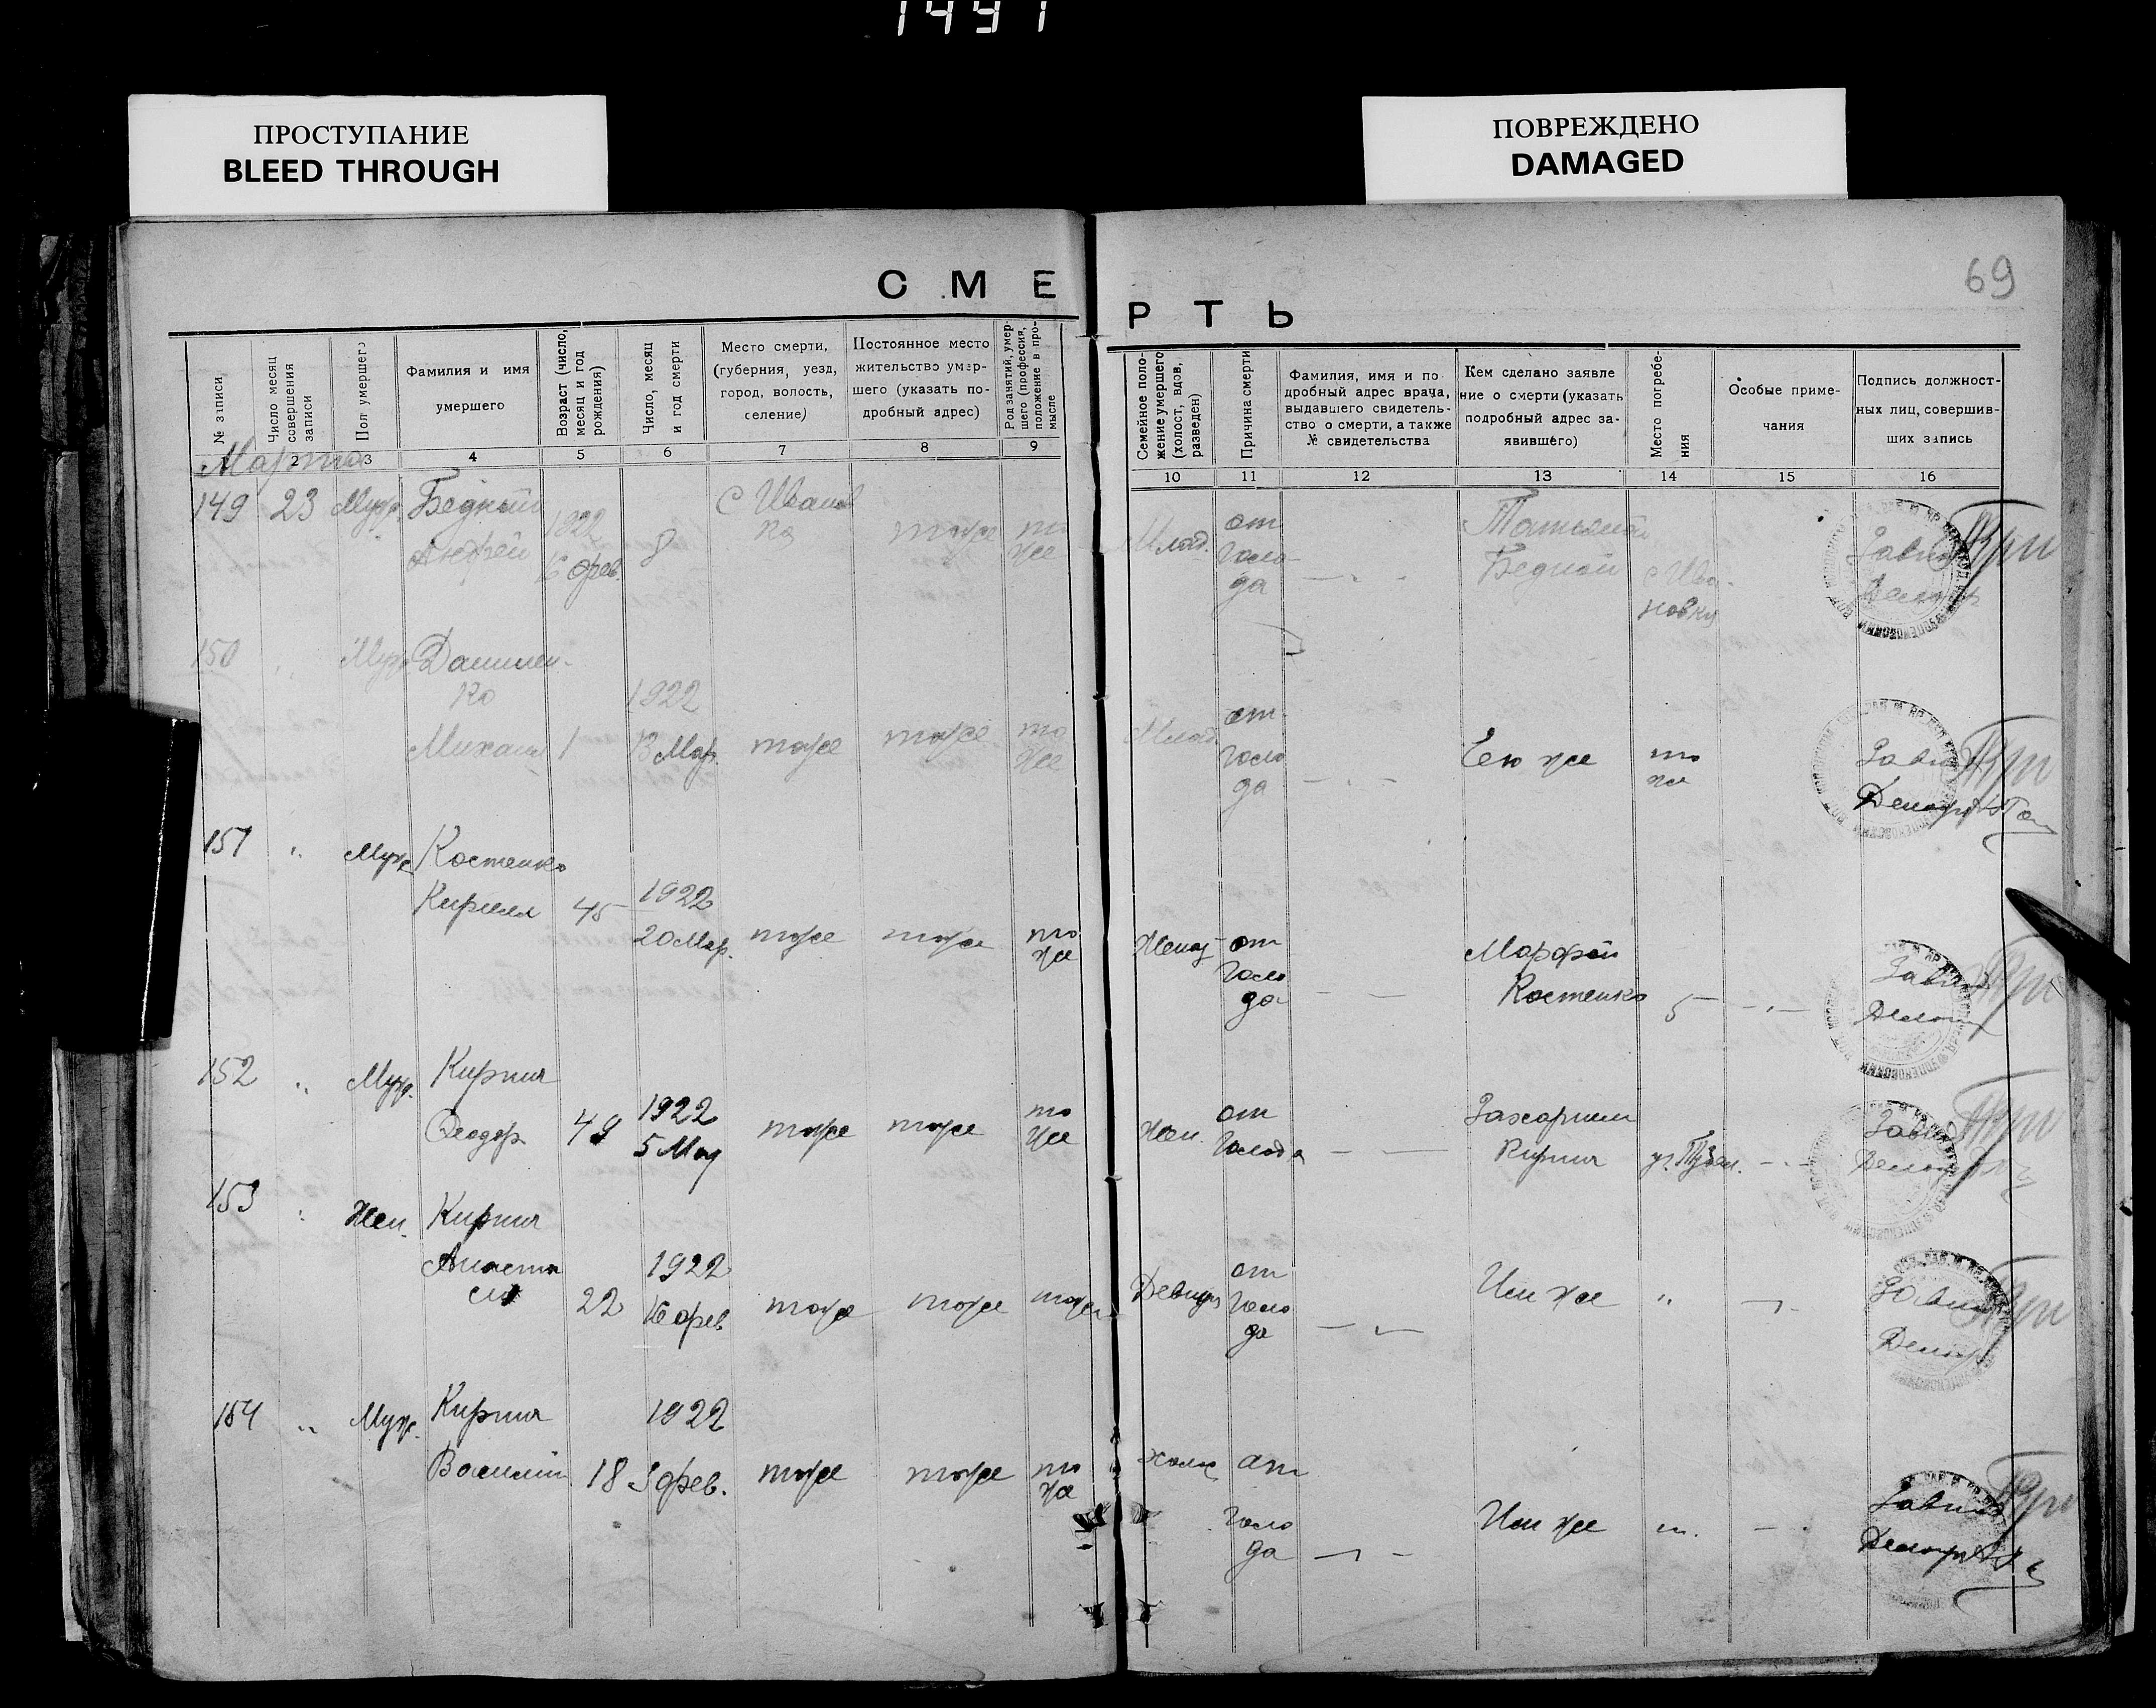 1491
ПРОСТУПАНИЕ
BLEED THROUGH
ПОВРЕЖДЕНО
DAMAGED
69
С М Е Р Т Ь
№ записи
Число месяц совершения записи
Пол умершего
Фамилия и имя умершего
Возраст (число, месяц и год рождения)
Число, месяц и год смерти
Место смерти, (губерния, уезд, город, волость, селение)
Постоянное место жительство умершего (указать подробный адрес)
Род занятий, умершего (профессия, положение в промысле
Семейное положение умершего (холост, вдов, разведен)
Причина смерти
Фамилия, имя и подробный адрес врача, выдавшего свидетельство о смерти, а также № свидетельства
Кем сделано заявление о смерти (указать подробный адрес заявившего)
Место погребения
Особые примечания
Подпись должностных лиц, совершивших запись
2 3 4 5 6 7 8 9 10 11 12 13 14 15 16
Марта
149 23 Муж. Бедный Андрей 1922 фев. 8 С Иванов ка тоже то же Млад. от голо да Татьяной Бедной с Ива новки
150 " Муж Данилен- ко Михаил 1 1922 13 Мар. тоже тоже то же Млад. от голо да Ею же то же
151 " Муж Костенко Кирилл 45 1922 20 Мар. тоже тоже то же Женат от голо да Марфой Костенко
152 " Муж. Кирпич Феодор 49 1922 5 Мар тоже тоже то же Жен. от голода Захарием Кирпич
153 " Жен. Кирпич Анаста сия 22 1922 фев тоже тоже тоже Девица от голо да Им же "
154 " Муж. Кирпич Василий 18 1922 фев. тоже тоже то же холос от голо да Им же